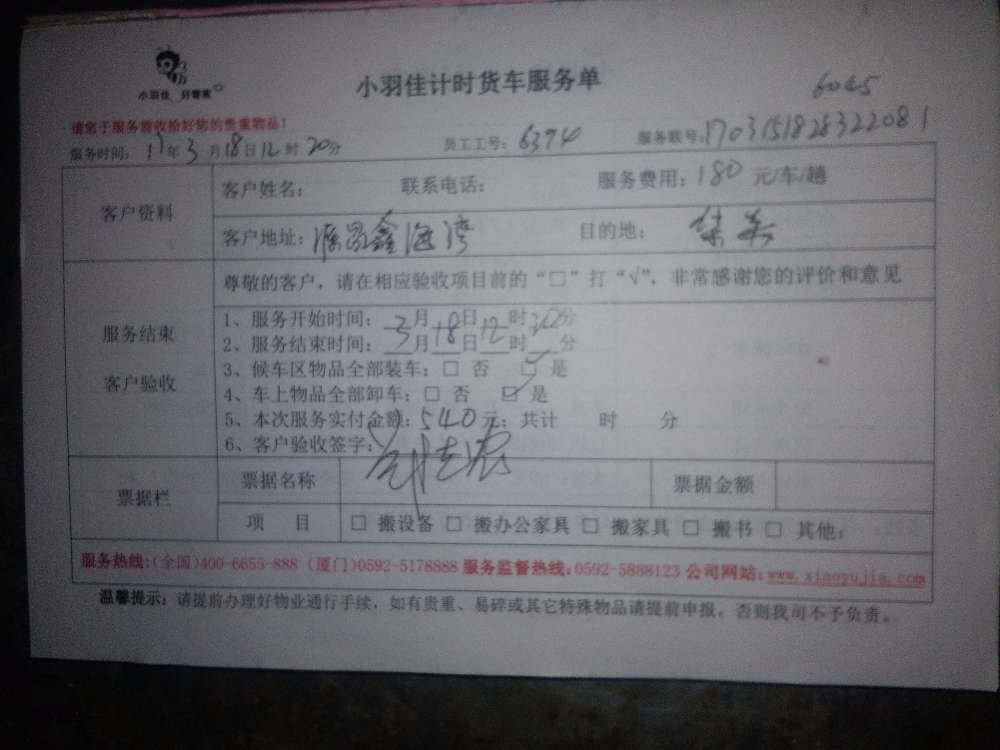 小羽佳计时货车服务单
小羽佳 好管家
6045
请您于服务前收拾好您的贵重物品!
服务时间: 17年3月18日12时20分 员工工号: 6394 服务联号:
客户资料
客户姓名: 联系电话: 服务费用: 180 元/车/趟
客户地址: 源昌鑫海湾 目的地: 集美
服务结束
客户验收
尊敬的客户,请在相应验收项目前的“□”打“√”,非常感谢您的评价和意见
1、服务开始时间: 3月18日12时
2、服务结束时间: 月 日 时 分
3、候车区物品全部装车: □ 否 ☑ 是
4、车上物品全部卸车: □ 否 ☑ 是
5、本次服务实付金额: 540 元; 共计 时 分
6、客户验收签字:
票据栏
票据名称 票据金额
项 目 □ 搬设备 □ 搬办公家具 □ 搬家具 □ 搬书 □ 其他:
服务热线:(全国)400-6655-888 (厦门)0592-5178888 服务监督热线:0592-5888123 公司网站:www.xiaoyujia.com
温馨提示: 请提前办理好物业通行手续,如有贵重、易碎或其它特殊物品请提前申报,否则我司不予负责。